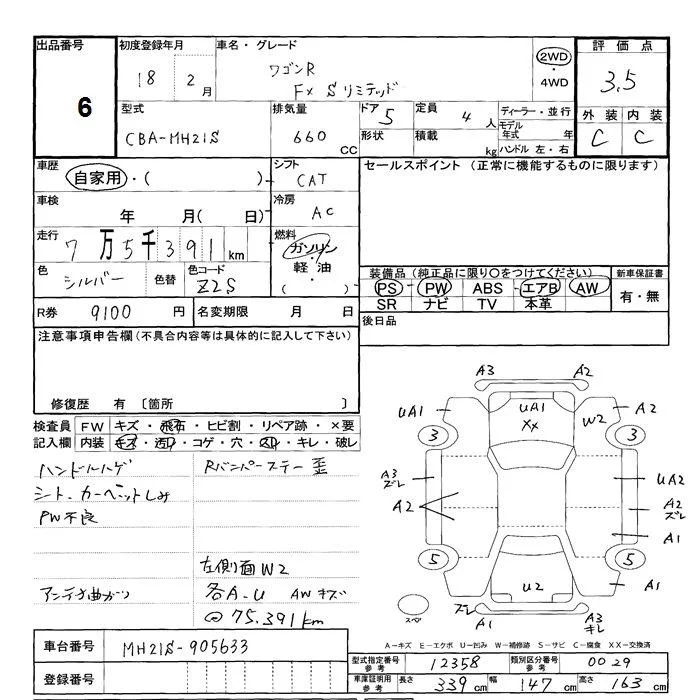 出品番号 6
初度登録年月 18 2月
車名・グレード ワゴンR
FX Sリミテッド
2WD・4WD
評価点 3.5
外装 C 内装 C
型式 CBA-MH21S
排気量 660 CC
ドア 5
形状
定員 4人
積載 kg
ディーラー・並行
モデル年式 年
ハンドル 左・右
車歴 自家用・( )
シフト CAT
セールスポイント (正常に機能するものに限ります)
車検 年 月( 日)
冷房 AC
走行 7万5千391km
燃料 ガソリン・軽油・( )
色 シルバー
色替
色コード Z2S
装備品(純正品に限り〇をつけてください)
PS・PW・ABS・エアB・AW
SR ナビ TV 本革
新車保証書 有・無
R券 9100円
名変期限 月 日
後日品
注意事項申告欄(不具合内容等は具体的に記入して下さい)
修復歴 有〔箇所 〕
検査員記入欄
FW キズ・飛石・ヒビ割・リペア跡・×要
内装 キズ・汚れ・コゲ・穴・スレ・キレ・破レ
ハンドルハゲ
Rバンパーステー歪
シート、カーペットしみ
PW不良
左側面W2
アンテナ曲がり
各A-U AWキズ
@75.391km
A3 A2
UA1 UA1 XX W2 A2
3 3
A3 ズレ UA2
A2 A2 ズレ
A1
5 5
U2 A1
スペ ズレ A1 A3 キレ
A-キズ E-エクボ U-凹み W-補修跡 S-サビ C-腐食 XX-交換済
車台番号 MH21S-905633
型式指定番号 参考 12358
類別区分番号 参考 0029
登録番号
車庫証明用 参考 長さ 339cm 幅 147cm 高さ 163cm